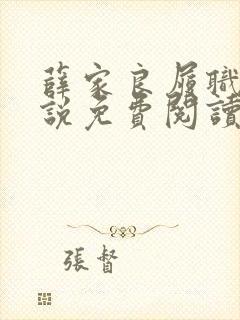 薛家良履職
說免費閱讀
張督